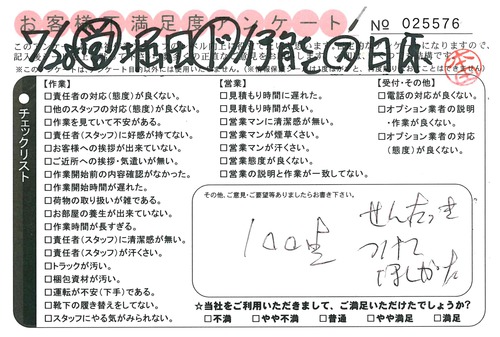 お客様不満足度アンケート!
№ 025576
※このアンケートは、アンケート目的以外には使用いたしません。
チェックリスト
【作業】
□責任者の対応(態度)が良くない。
□他のスタッフの対応(態度)が良くない。
□作業を見ていて不安がある。
□責任者(スタッフ)に好感が持てない。
□お客様への挨拶が出来ていない。
□ご近所への挨拶・気遣いが無い。
□作業開始前の内容確認がなかった。
□作業開始時間が遅れた。
□荷物の取り扱いが雑である。
□お部屋の養生が出来ていない。
□作業時間が長すぎる。
□責任者(スタッフ)に清潔感が無い。
□責任者(スタッフ)が汗くさい。
□トラックが汚い。
□梱包資材が汚い。
□運転が不安(下手)である。
□靴下の履き替えをしてない。
□スタッフにやる気がみられない。
【営業】
□見積もり時間に遅れた。
□見積もり時間が長い。
□営業マンに清潔感が無い。
□営業マンが煙草くさい。
□営業マンが汗くさい。
□営業態度が良くない。
□営業の説明と作業が一致してない。
【受付・その他】
□電話の対応が良くない。
□オプション業者の説明・作業が良くない。
□オプション業者の対応(態度)が良くない。
その他、ご意見・ご要望等ありましたらお書き下さい。
100点
せんたっき
つけて
ほしかった
☆当社をご利用いただきまして、ご満足いただけたでしょうか?
□不満 □やや不満 □普通 □やや満足 □満足